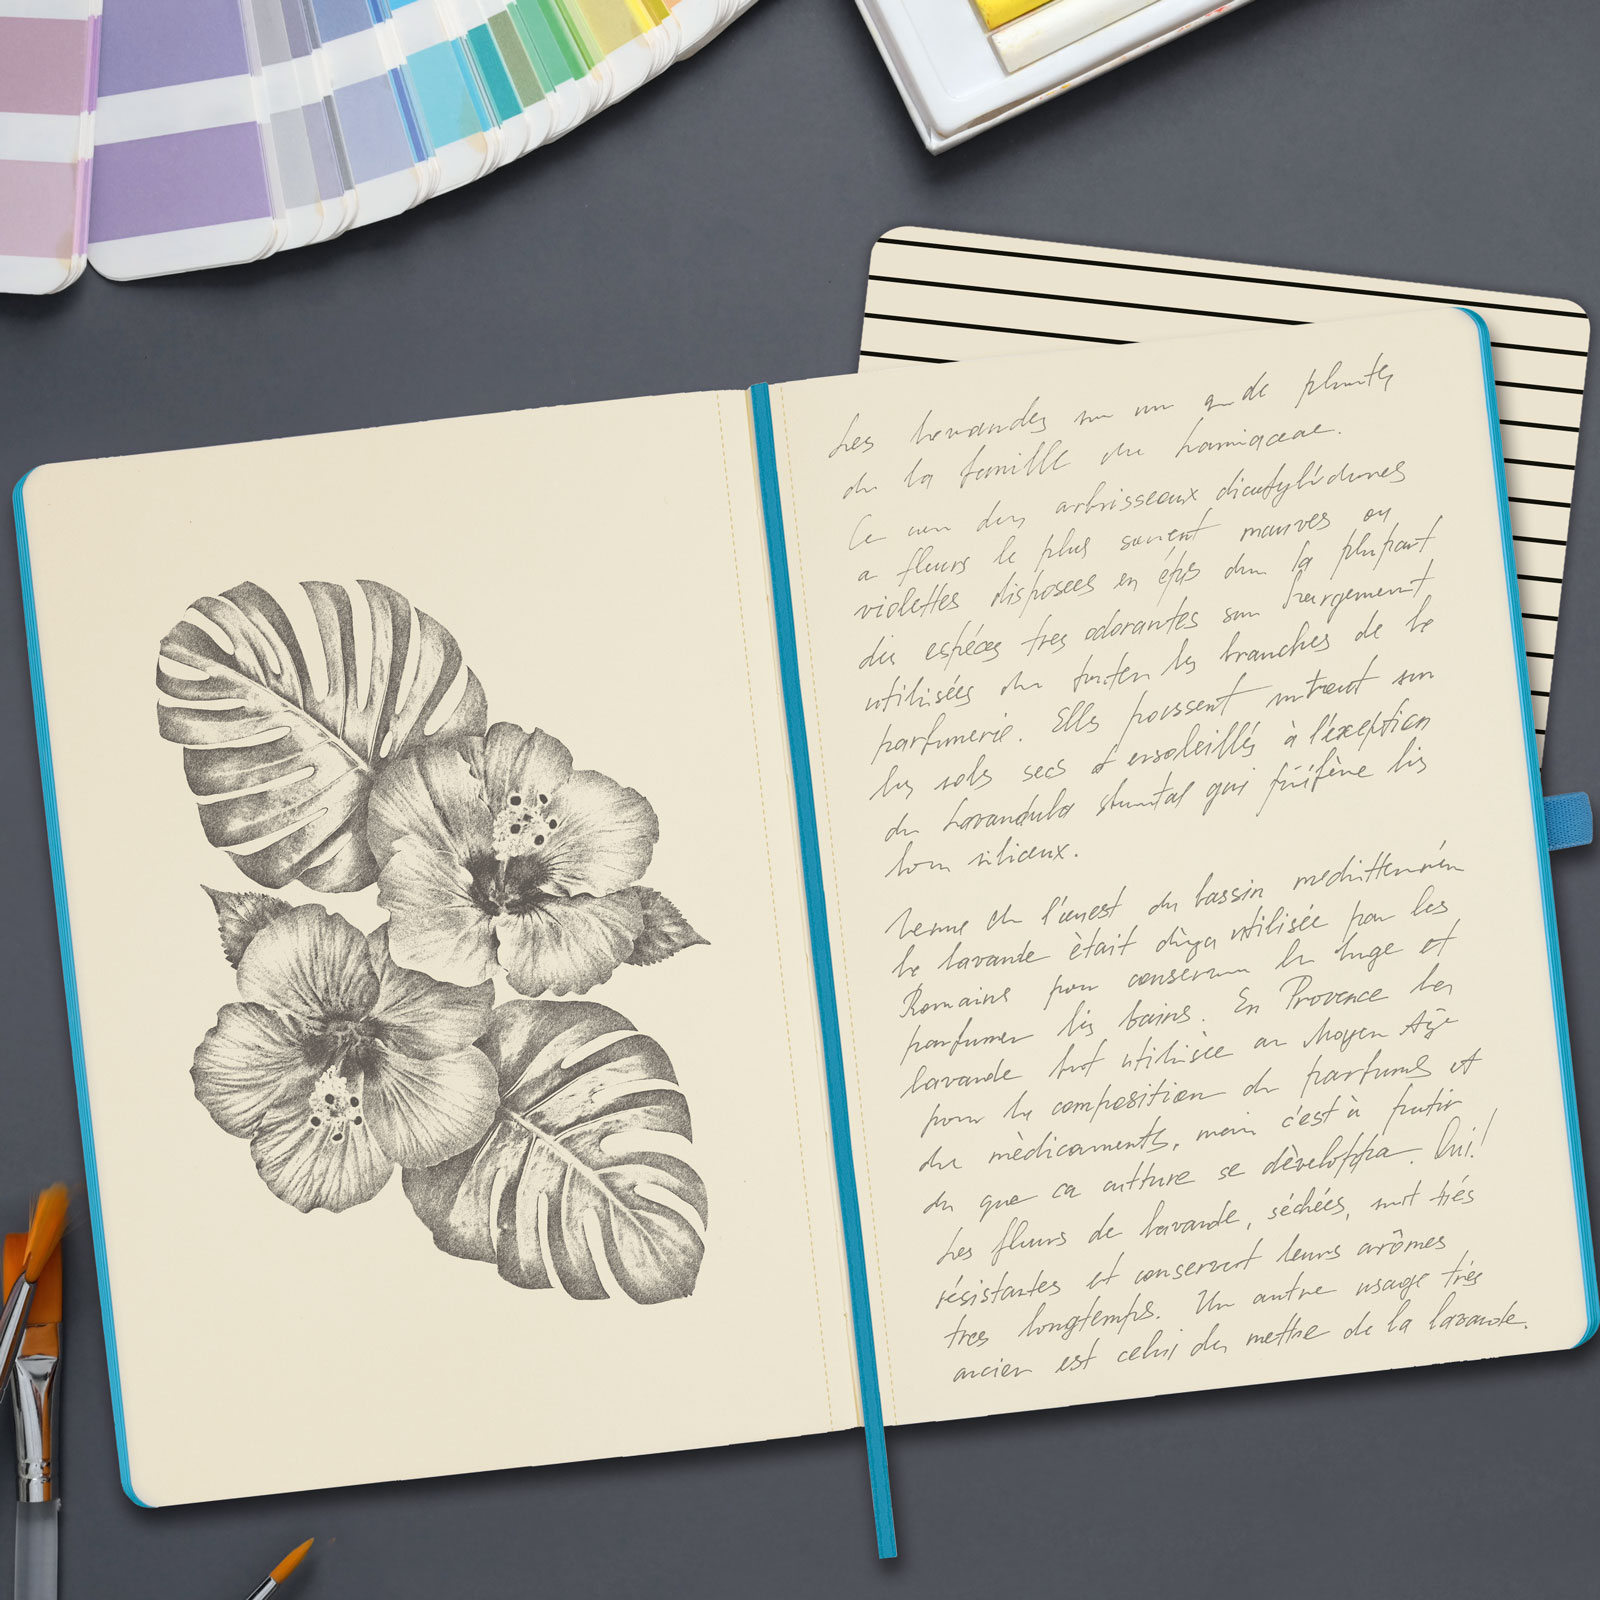 Les lavandes un de plantes
de la famille du Lamiaceae.
Ce arbrisseaux dicotylédones
a fleurs le plus souvent mauves ou
violettes disposees en épis la plupart
des espéces tres odorantes largement
utilisées les branches de la
parfumerie. Elles poussent surtout sur
les sols secs ensoleillés à l'exeption
du Lavandula qui préfère les
siliceux.
Venue de l'ouest du bassin
la lavande ètait dèja utilisée par les
Romains pour conserver le linge et
parfumer les bains. En Provence la
lavande fut utilisèe au Moyen Age
pour la composition de parfums et
de mèdicaments, mais c'est à partir
du que ca culture se dèveloppa. Oui!
Les fleurs de lavande, séchées, sont trés
résistantes et conservent leurs arômes
tres longtemps. Un autre usage trés
ancien est celui de mettre de la lavande.